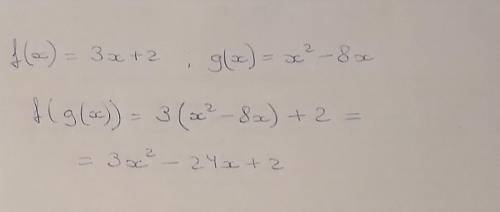 f(x) = 3x+2 ; g(x) = x² - 8x
f(g(x)) = 3(x² - 8x) + 2 =
= 3x² - 24x + 2